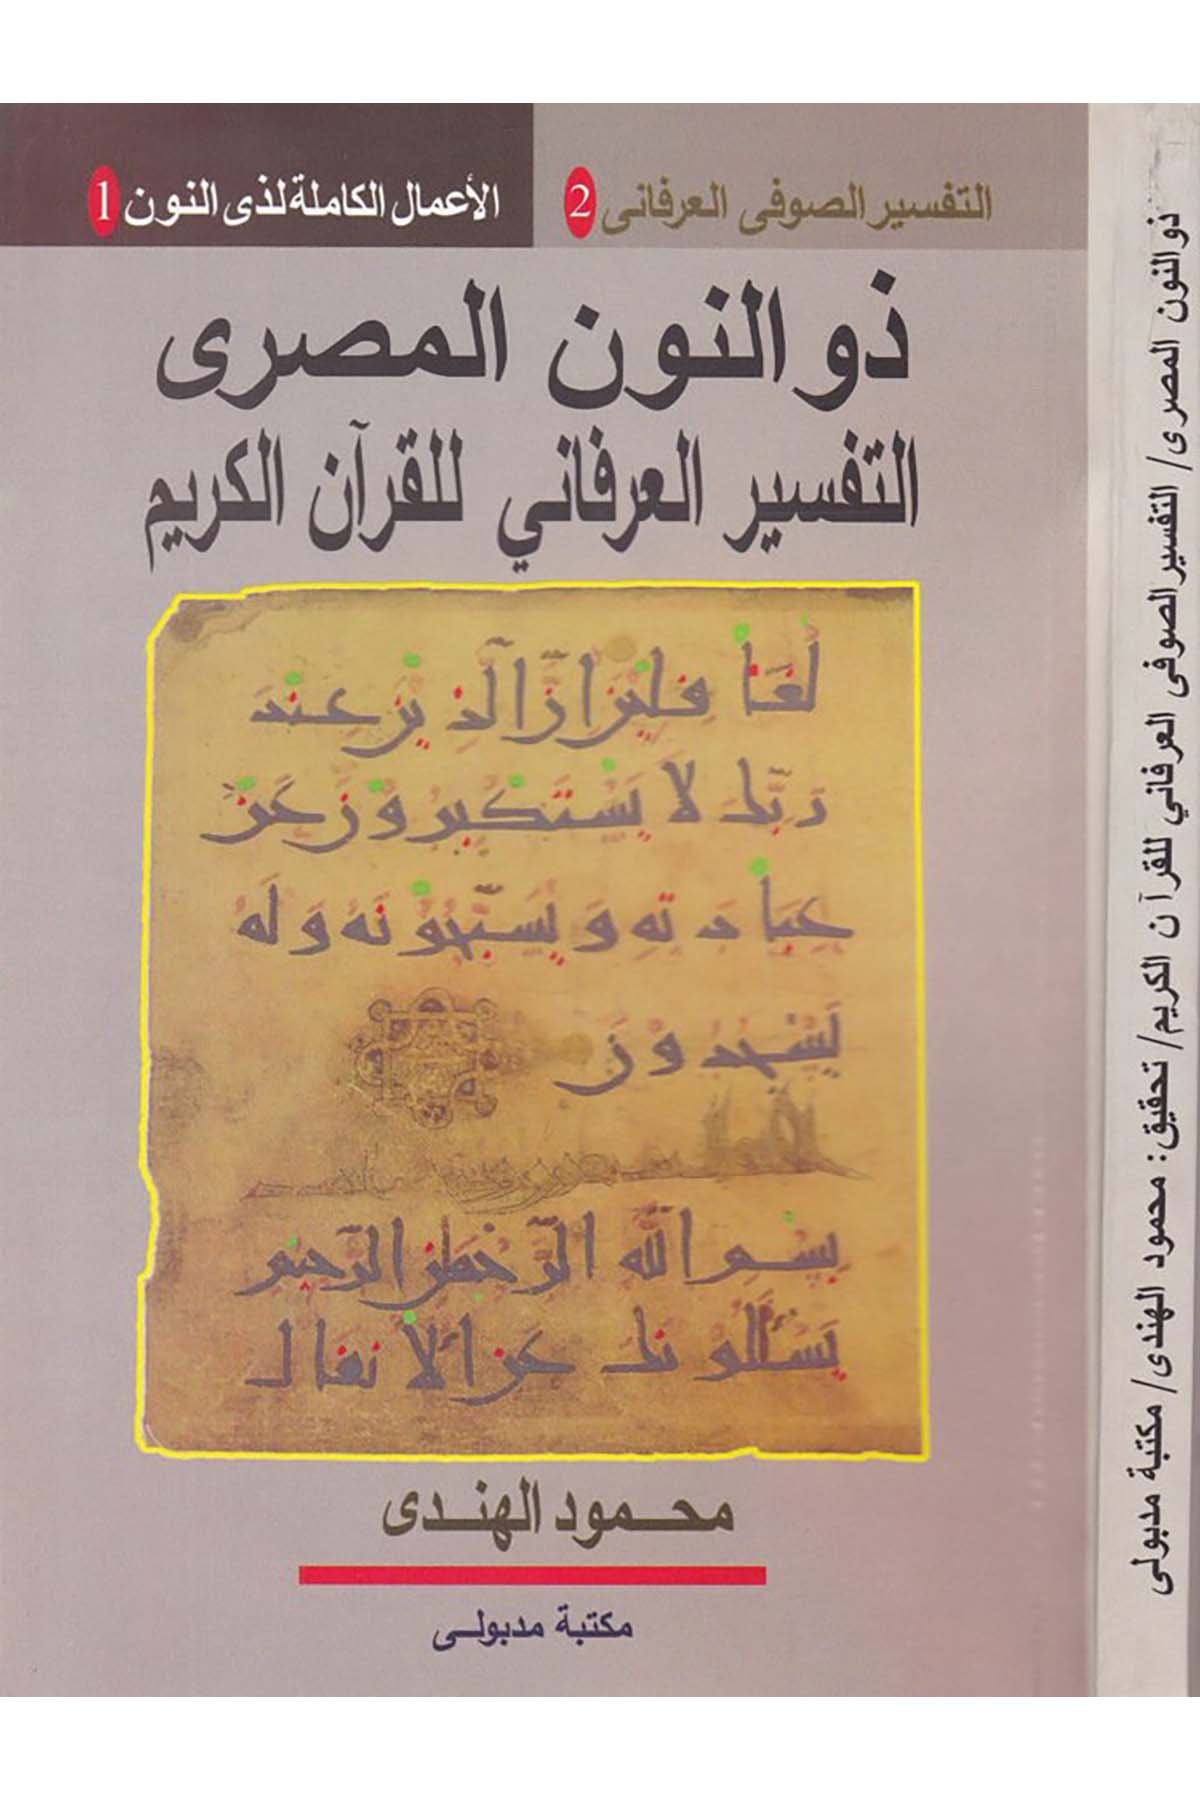 التفسير الصوفى العرفانى 2
الأعمال الكاملة لذى النون 1
ذو النون المصرى
التفسير العرفاني للقرآن الكريم
فإن الذين عند
ربك لا يستكبرون عن
عبادته ويسبحونه وله
يسجدون
بسم الله الرحمن الرحيم
يسألونك عن الأنفال
محمود الهندى
مكتبة مدبولى
ذو النون المصرى / التفسير الصوفى العرفاني للقرآن الكريم / تحقيق : محمود الهندى / مكتبة مدبولى